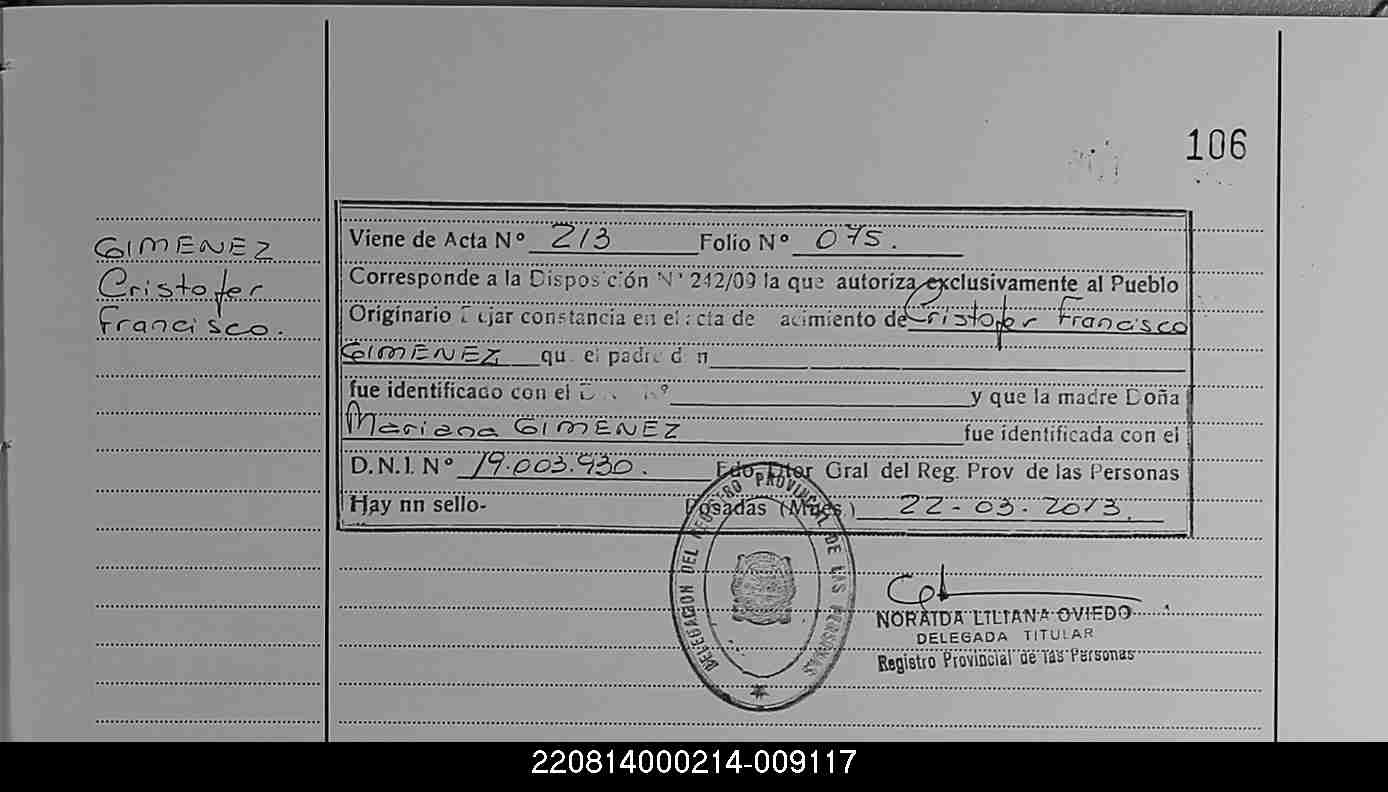 106
GIMENEZ
Cristofer
Francisco.
Viene de Acta Nº 213 Folio Nº 075.
Corresponde a la Disposición Nº 242/09 la que autoriza exclusivamente al Pueblo
Originario Dejar constancia en el acta de nacimiento de Cristofer Francisco
GIMENEZ que el padre don
fue identificado con el D.N.I. Nº y que la madre Doña
Mariana GIMENEZ fue identificada con el
D.N.I. Nº 19.003.930. Fdo. Gral del Reg. Prov de las Personas
Hay nn sello- Posadas (Mnes) 22-03-2013.
DELEGACION DEL REGISTRO PROVINCIAL DE LAS PERSONAS
NORAIDA LILIANA OVIEDO
DELEGADA TITULAR
Registro Provincial de las Personas
220814000214-009117